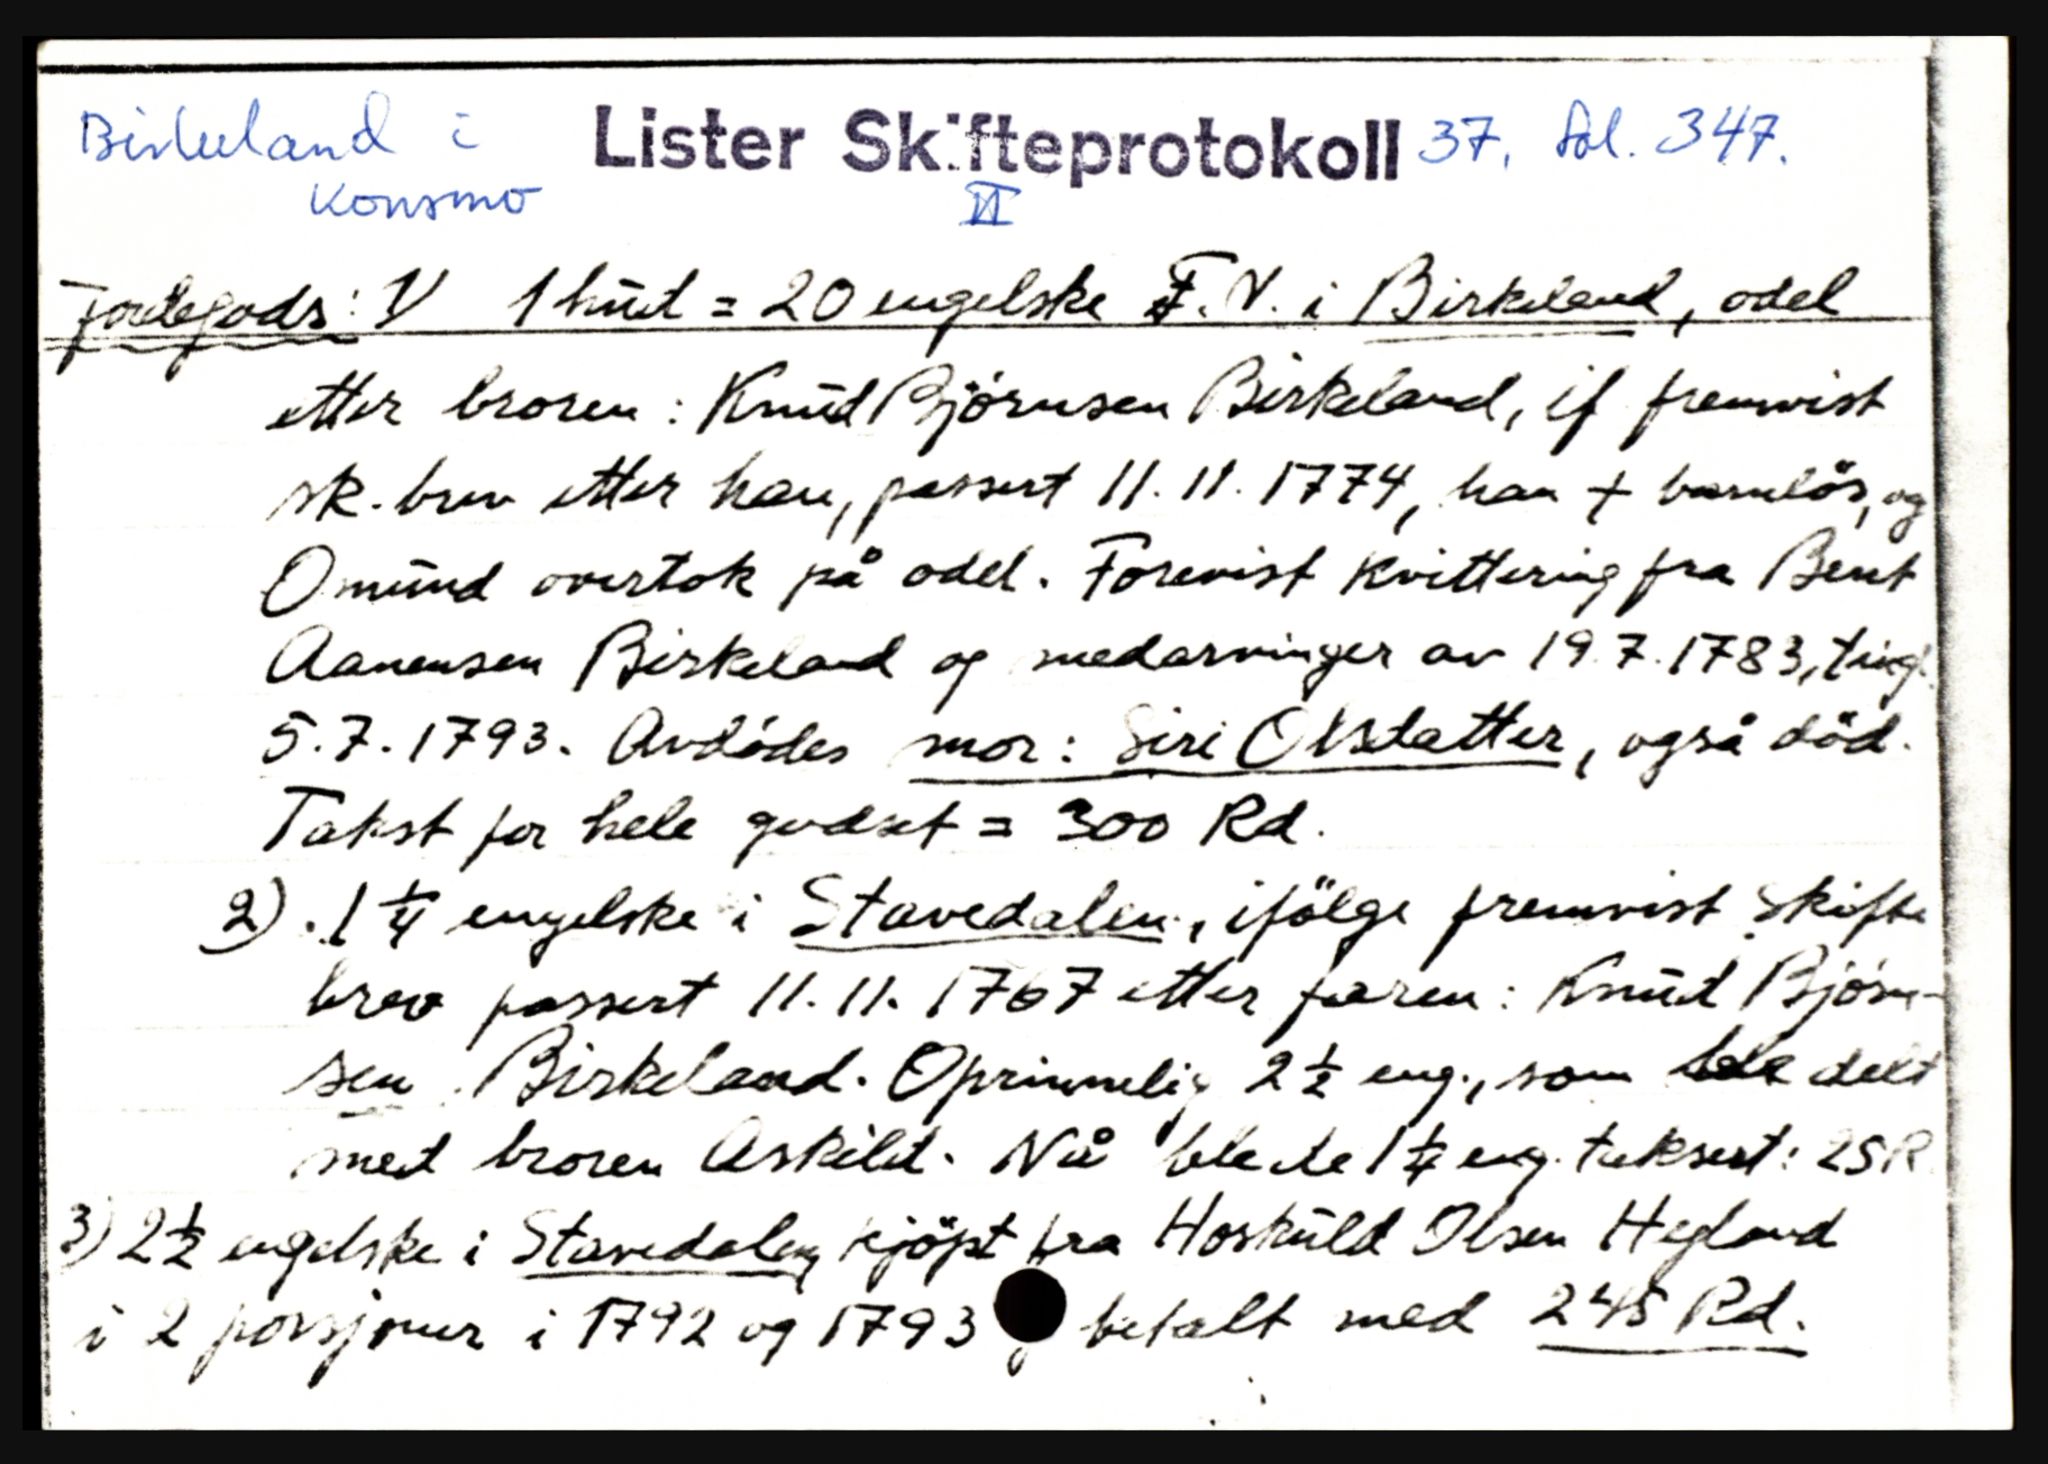 Birkeland i Lister Skifteprotokoll 37, fol. 347.
Konsmo II
Jordegods: 1/ 1 hud = 20 engelske F.V. i Birkeland, odel
etter broren: Knud Bjørnsen Birkeland, if fremvist
sk.brev etter han, passert 11.11.1774, han + barnlös, og
Omund overtok på odel. Forevist kvittering fra Bent
Aanensen Birkeland og medarvinger av 19.7.1783, tingl.
5.7.1793. Avdödes mor: Siri Olsdatter, også död.
Takst for hele godset = 300 Rd.
2). 1 1/4 engelske i Stavedalen, ifölge fremvist Skifte
brev passert 11.11.1767 etter faren: Knud Bjørn-
sen Birkeland. Oprinnelig 2 1/2 eng., som ble delt
med broren Askild. Nå ble de 1 1/4 eng. taksert: 25 R
3) 2 1/2 engelske i Stavedalen, kjöpt fra Hoskuld Olsen Hegland
i 2 porsjoner i 1792 og 1793 og betalt med 245 Rd.